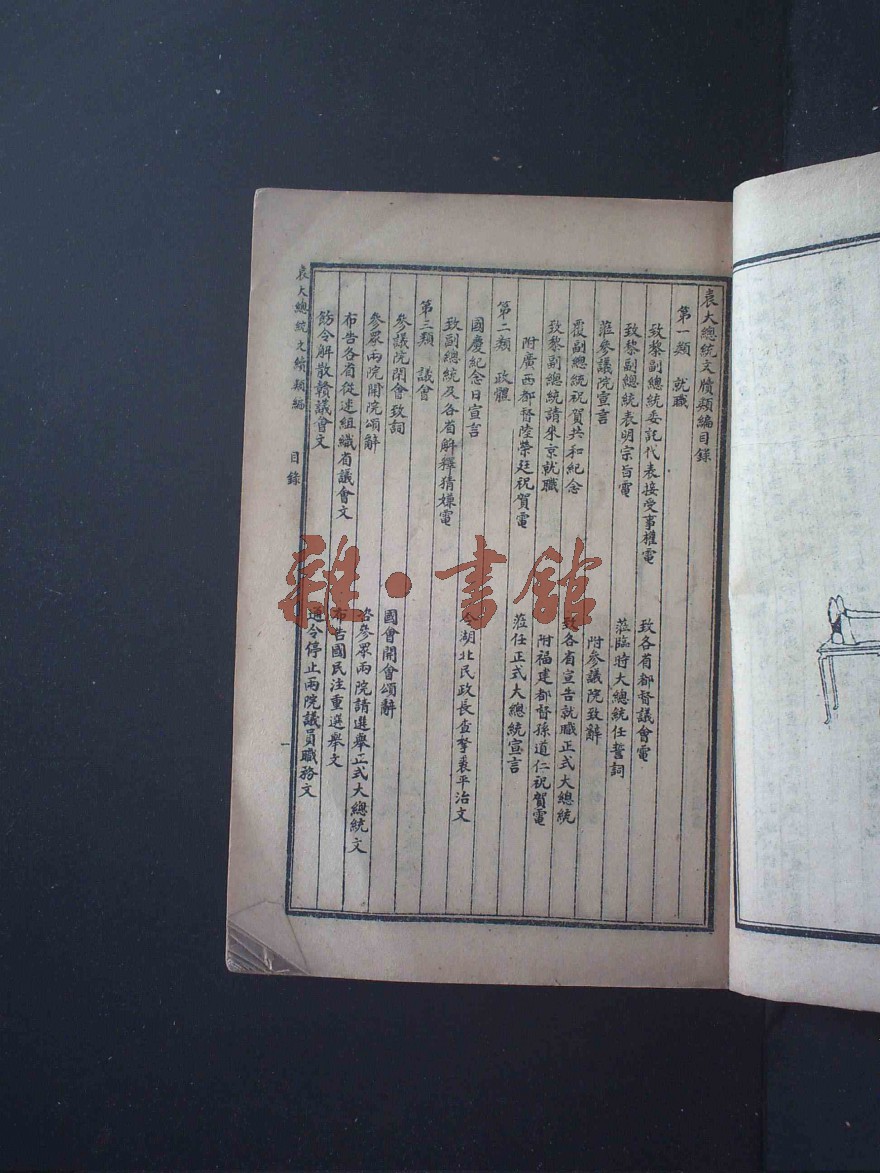 袁大總統文牘類編目錄
第一類　就職
致黎副總統委託代表接受事權電　致各省都督議會電
致黎副總統表明宗旨電　蒞臨時大總統任誓詞
蒞參議院宣言　附參議院致辭
覆副總統祝賀共和紀念　致各省宣告就職正式大總統
致黎副總統請來京就職　附福建都督孫道仁祝賀電
附廣西都督陸榮廷祝賀電　蒞任正式大總統宣言
第二類　政體
國慶紀念日宣言　令湖北民政長查拏裘平治文
致副總統及各省解釋猜嫌電
第三類　議會
參議院閉會致詞　國會開會頌辭
參眾兩院開院頌辭　咨參眾兩院請選舉正式大總統文
布告各省從速組織省議會文　布告國民注重選舉文
飭令解散贛議會文　通令停止兩院議員職務文
袁大總統文牘類編　目錄　一
雜·書館